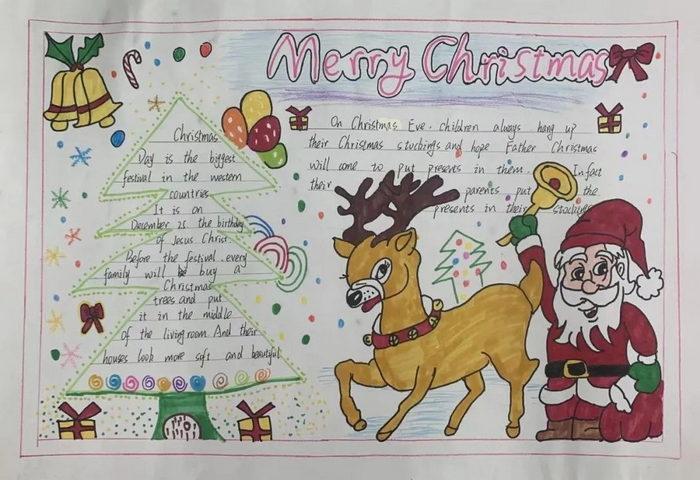 Merry Christmas
Christmas
Day is the biggest
festival in the western
countries
It is on
December 25 the birthday
of Jesus Christ
Before the festival, every
family will be buy a
Christmas
trees and put
it in the middle
of the living room. And their
houses look more soft and beautiful
On Christmas Eve. children always hang up
their Christmas stockings and hope Father Christmas
will come to put presents in them. In fact
their parents put the
presents in their stockings